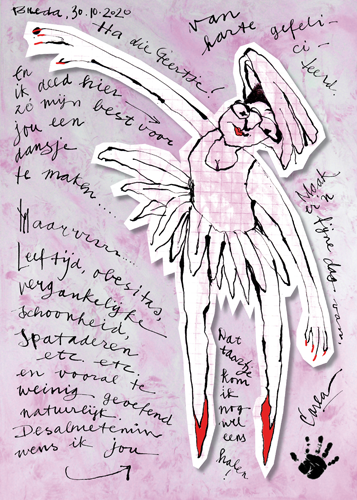 Breda, 30.10.2020
Ha die Geertje!
van
harte gefeli-
ci-
teerd.
En
ik deed hier
zó mijn best voor
jou een
dansje
te maken.....
Maarrrrr...
Leeftijd, obesitas,
vergankelijke
schoonheid,
spataderen
etc. etc.
en vooral te
weinig geoefend
natuurlijk.
Desalniettemin
wens ik jou
Maak
er 'n
fijne dag van
Dat
taartje
kom
ik
nog
wel
eens
halen!